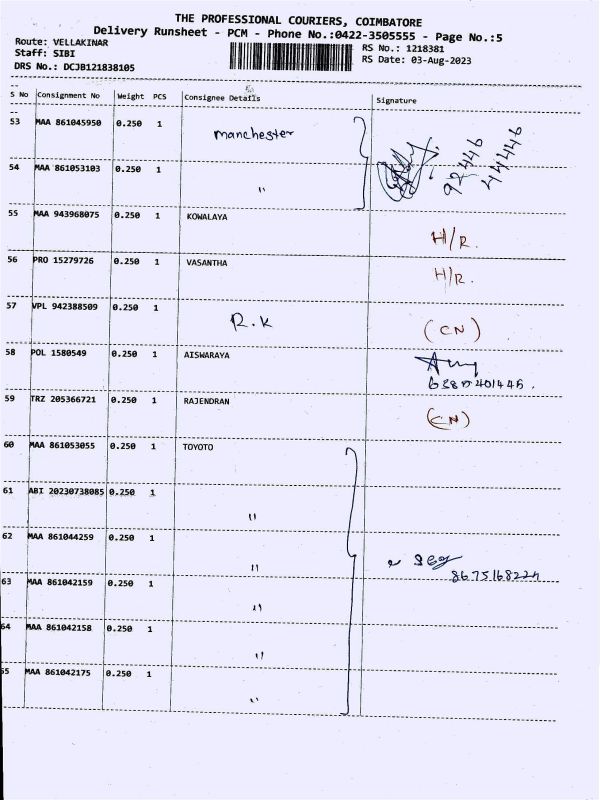 THE PROFESSIONAL COURIERS, COIMBATORE
Delivery Runsheet - PCM - Phone No.:0422-3505555 - Page No.:5
Route: VELLAKINAR
Staff: SIBI
DRS No.: DCJB121838105
RS No.: 1218381
RS Date: 03-Aug-2023
S No Consignment No Weight PCS Consignee Details Signature
53 MAA 861045950 0.250 1 Manchester
92446
44446
54 MAA 861053103 0.250 1 "
55 MAA 943968075 0.250 1 KOWALAYA H/R.
56 PRO 15279726 0.250 1 VASANTHA H/R.
57 VPL 942388509 0.250 1 R.K (CN)
58 POL 1580549 0.250 1 AISWARAYA
59 TRZ 205366721 0.250 1 RAJENDRAN (CN)
60 MAA 861053055 0.250 1 TOYOTO
61 ABI 20230738085 0.250 1 "
62 MAA 861044259 0.250 1 "
8675168224
63 MAA 861042159 0.250 1 "
64 MAA 861042158 0.250 1 "
65 MAA 861042175 0.250 1 "